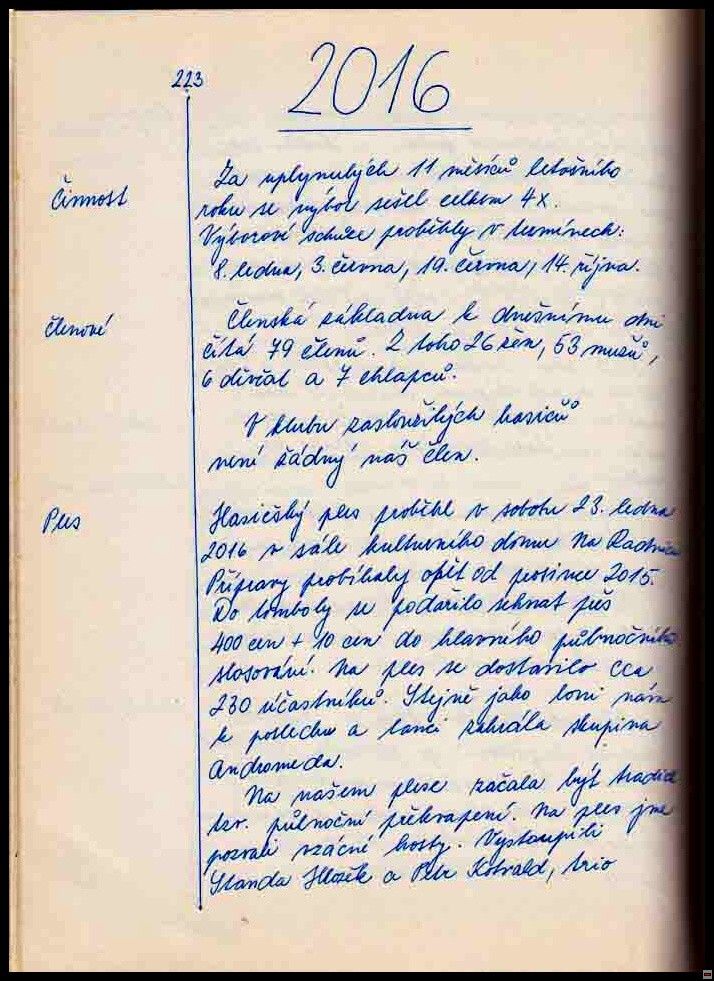 223
2016
Činnost
Za uplynulých 11 měsíců letošního
roku se výbor sešel celkem 4x.
Výborové schůze proběhly v termínech:
8. ledna, 3. června, 19. června, 14. října.
Členové
Členská základna k dnešnímu dni
čítá 79 členů. Z toho 26 žen, 53 mužů,
6 dívčat a 7 chlapců.
V klubu zasloužilých hasičů
není žádný náš člen.
Ples
Hasičský ples proběhl v sobotu 23. ledna
2016 v sále kulturního domu Na Radnici
Přípravy probíhaly opět od prosince 2015.
Do tomboly se podařilo sehnat přes
400 cen + 10 cen do hlavního půlnočního
slosování. Na ples se dostavilo cca
230 účastníků. Stejně jako loni nám
k poslechu a tanci zahrála skupina
Andromeda.
Na našem plese začala být tradicí
tzv. půlnoční překvapení. Na ples jsme
pozvali vzácné hosty. Vystoupili
Standa Hložek a Petr Kotvald, trio